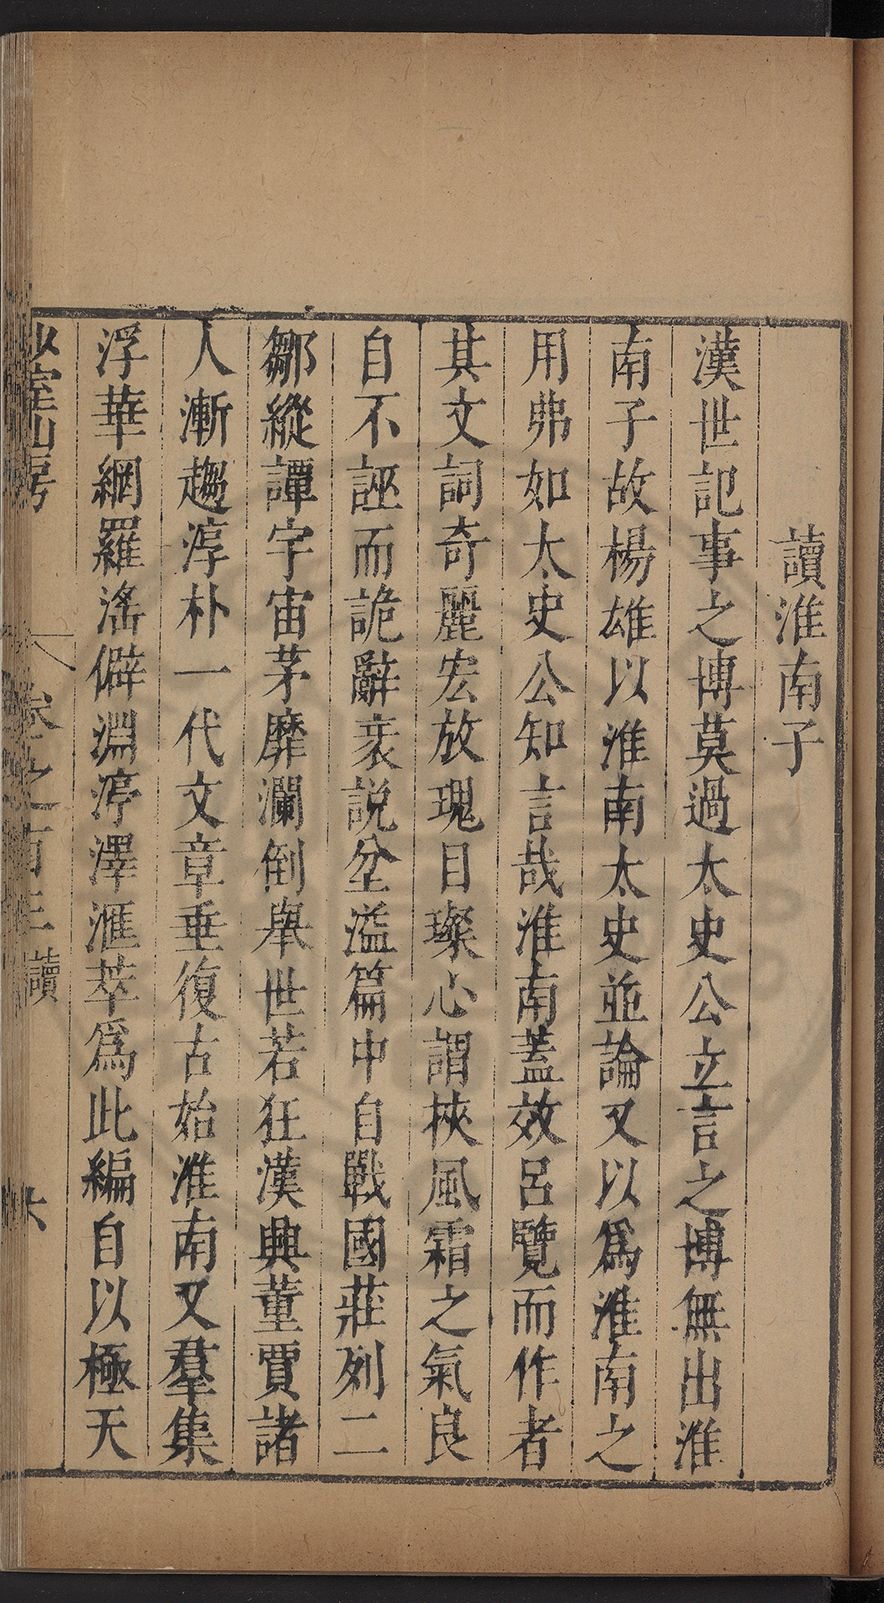 讀淮南子
漢世記事之博莫過太史公立言之博無出淮
南子故楊雄以淮南太史並論又以爲淮南之
用弗如太史公知言哉淮南蓋效呂覽而作者
其文詞奇麗宏放瑰目璨心謂挾風霜之氣良
自不誣而詭辭衺說坌溢篇中自戰國莊列二
鄒縱譚宇宙茅靡瀾倒舉世若狂漢興董賈諸
人漸趨淳朴一代文章垂復古始淮南又羣集
浮華網羅滛僻淵渟澤滙萃爲此編自以極天
少室山房
卷之百三 讀